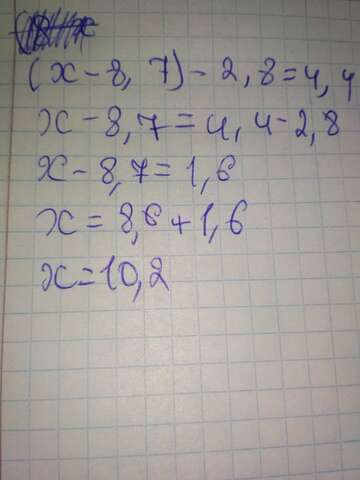 (x - 8, 7) - 2, 8 = 4, 4
x - 8, 7 = 4, 4 - 2, 8
x - 8, 7 = 1, 6
x = 8, 6 + 1, 6
x = 10, 2